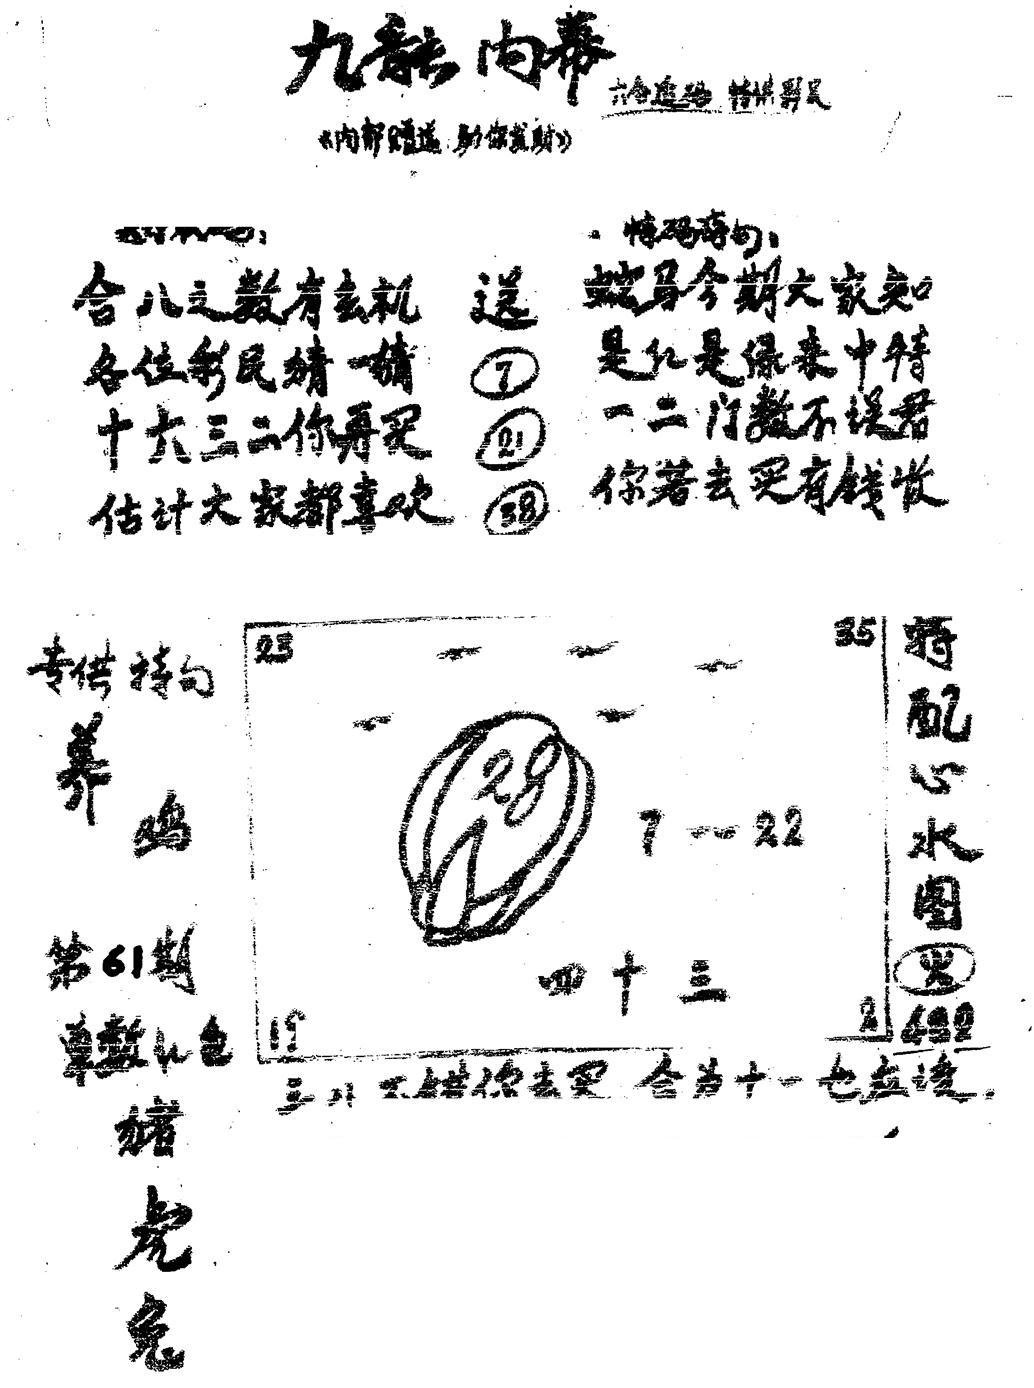 九龍内幕
六合透码 特供彩民
《内部赠送 助你发财》
特码诗句:
合八之数有玄机
送
蛇马今期大家知
各位彩民猜一猜
7
是红是绿来中特
十六三二你再买
21
一二门数不误君
估计大家都喜欢
38
你若去买有钱收
专供特句
养
鸡
第61期
单数红色
猪
虎
兔
23
35
28
7 — 22
四十三
19
2
特配心水图
火
三八不错你去买 合为十一也应该.